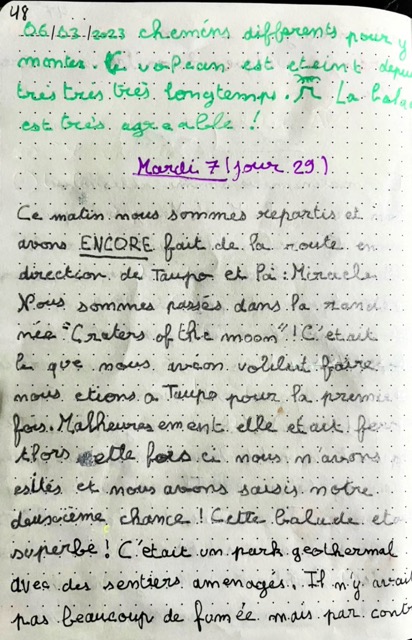 48
06/03/2023 chemins differents pour y
monter. Le volcan est eteint depu
très très très longtemps. La bala
est très agreable !
Mardi 7 (jour 29.)
Ce matin nous sommes repartis et
avons ENCORE fait de la route en
direction de Taupo et là : Miracle
Nous sommes passés dans la rand
née "Craters of the moon" ! C'était
la que nous avion
nous etions a Taupo pour la premie
fois. Malheuresement elle etait fer
Alors cette fois ci nous n'avons
esités et nous avons saisis notre
deuxième chance ! Cette balade eta
superbe ! C'était un park geothermal
avec des sentiers amenagés. Il n'y avait
pas beaucoup de fumée mais par contr